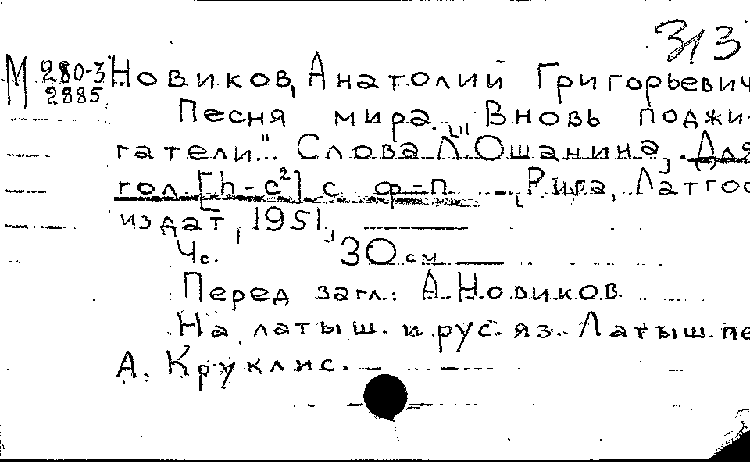 313
М 280-3 Новиков, Анатолий Григорьевич
2885
Песня мира. "Вновь поджи-
гатели"... Слова Л. Ошанина, Для
гол. [h-c²] с ф-п. Рига, Латгос
издат, 1951.
4с. 30 см
Перед загл.: А. Новиков
На латыш. и рус. яз. Латыш. пе
А. Круклис.